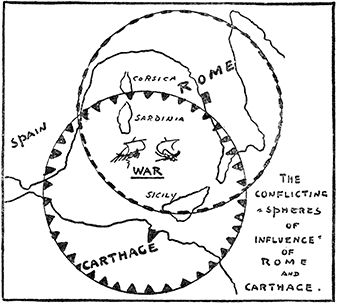 CORSICA
ROME
SARDINIA
SPAIN
WAR
SICILY
CARTHAGE
THE
CONFLICTING
"SPHERES
OF
INFLUENCE"
OF
ROME
AND
CARTHAGE.